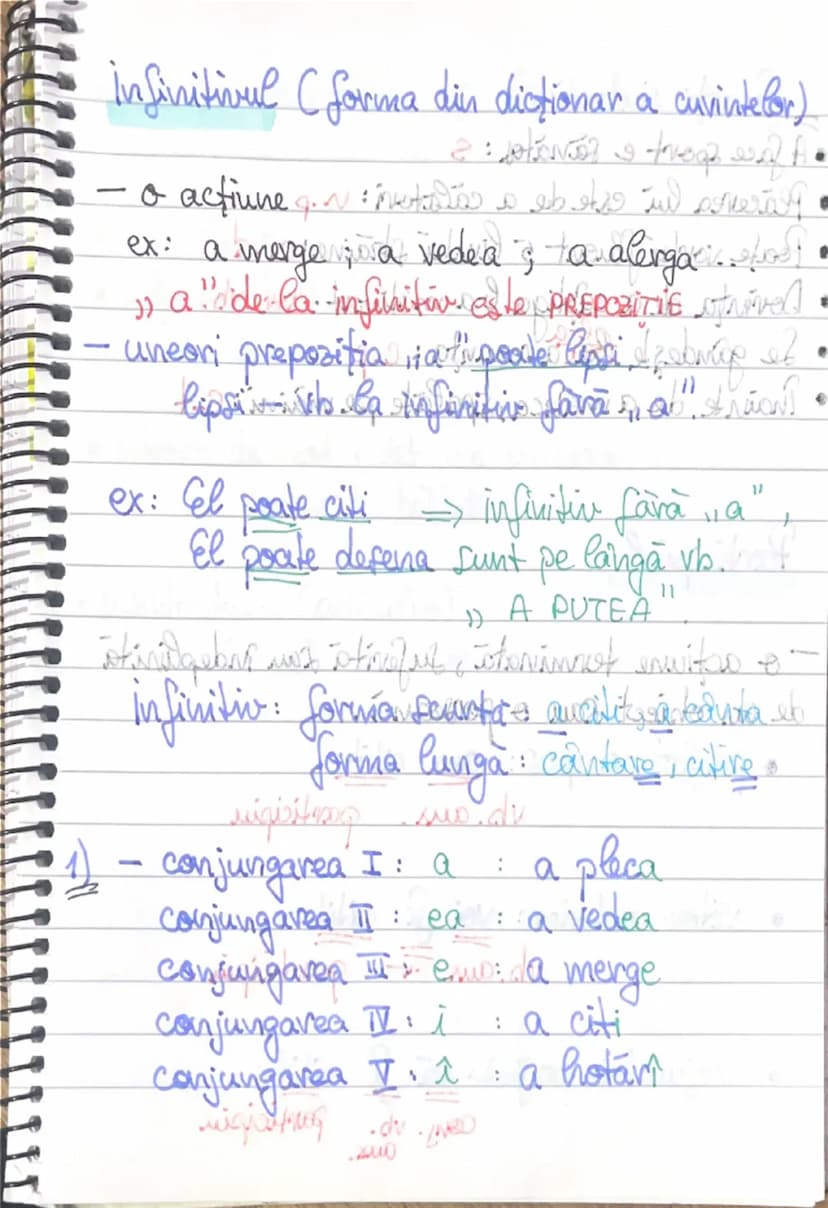 infinitivul (forma din dicționar a cuvintelor)
— o acțiune
ex: a merge ; a vedea ; a alerga...
„a" de la infinitiv este PREPOZIȚIE
— uneori prepoziția „a" poate lipsi
lipsi — vb. la infinitiv fără „a".
ex: El poate citi => infinitiv fără „a",
El poate desena sunt pe lângă vb.
„A PUTEA".
infinitiv: forma scurtă: a citi, a cânta
forma lungă: cântare, citire
1) — conjungarea I : a : a pleca
conjungarea II : ea : a vedea
conjungarea III : e : a merge
conjungarea IV : i : a citi
conjungarea V : î : a hotărî